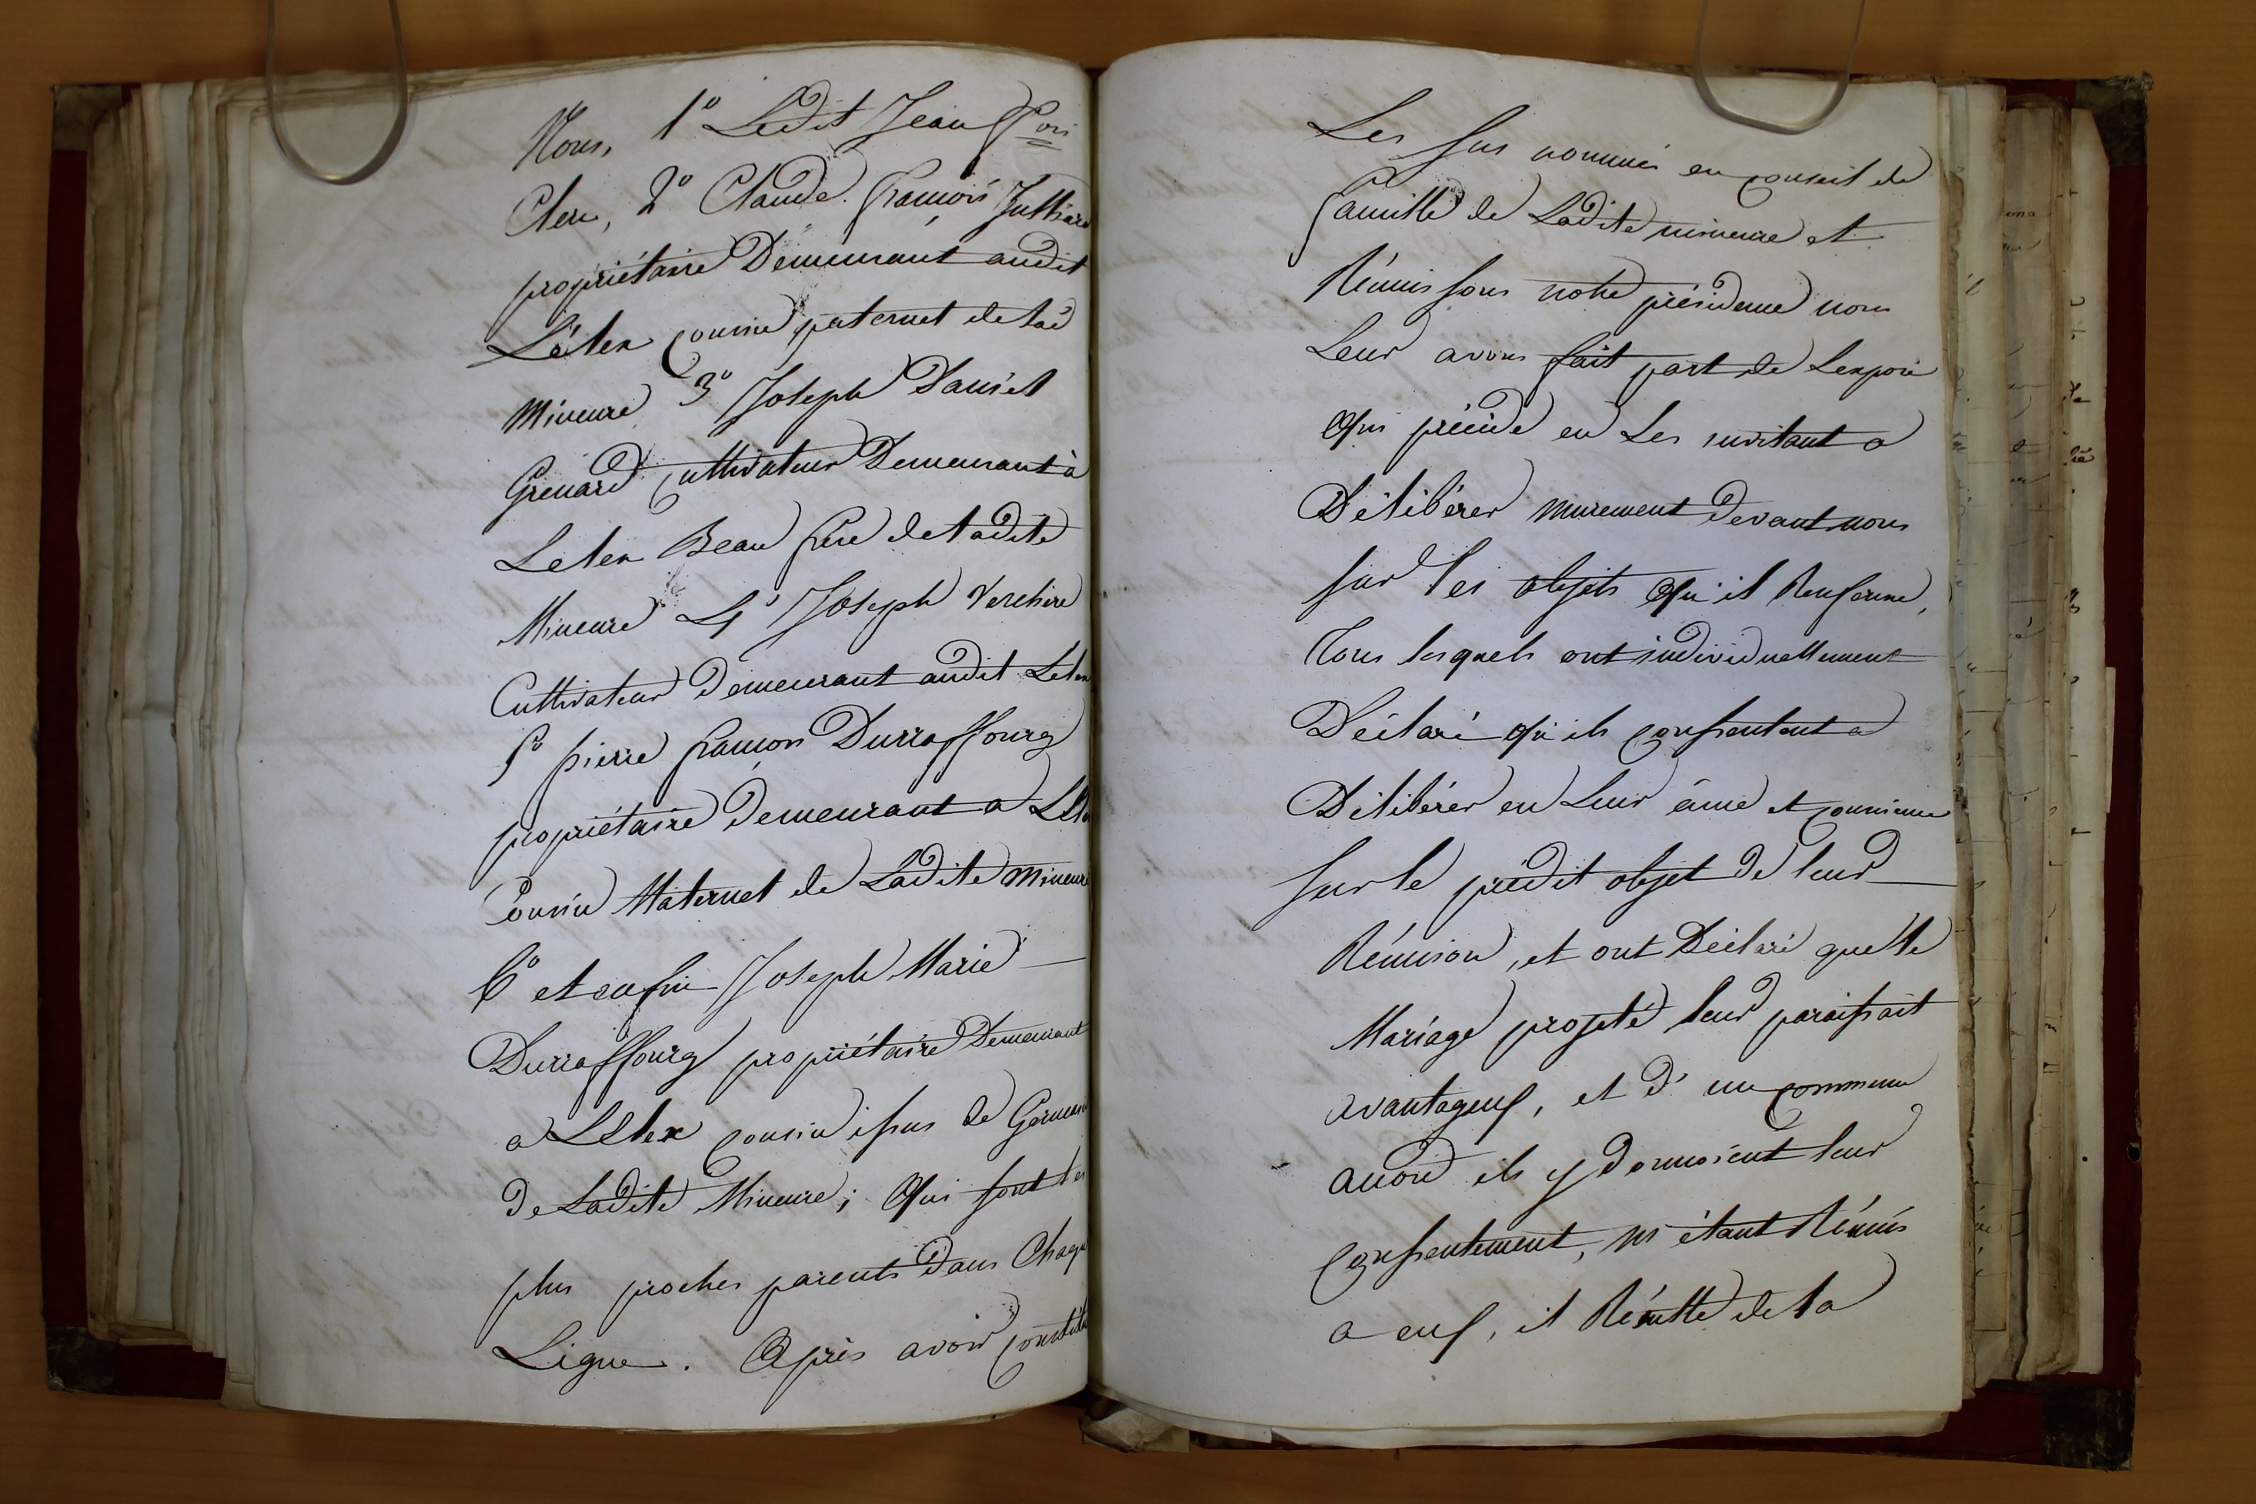 Nous, 1° Ledit Jean fçois
Clerc, 2° Claude françois Julliard
propriétaire Demeurant audit
Lélex cousin paternel de lad
Mineure 3° Joseph Daniel
Grenard Cultivateur Demeurant à
Lelex Beau frère de ladite
Mineure 4° Joseph Verchère
Cultivateur demeurant audit Lelex
5° pierre françois Durraffourg
propriétaire demeurant a Lelex
Cousin Maternel de Ladite Mineure
6° et enfin Joseph Marie
Durraffourg propriétaire Demeurant
a Lelex cousin issus de Germain
de Ladite Mineure ; qui sont les
plus proches parents dans Chaque
Ligne. Après avoir constitué
Les sus nommés en conseil de
famille de Ladite mineure et
Réunis sous notre présidence nous
Leur avons fait part de Lexposé
qui précède en Les invitant a
Délibérer murement devant nous
sur les objets qu'il Renferme,
Tous lesquels ont individuellement
Déclaré qu'ils consentent a
Délibérer en Leur âme et conscience
sur le prédit objet de leur
Réunion, et ont Déclaré que le
Mariage projeté leur paraissait
avantageux, et d'un commun
accord ils y donnoient leur
consentement, m'étant Réunis
a eux, il Résulte de la